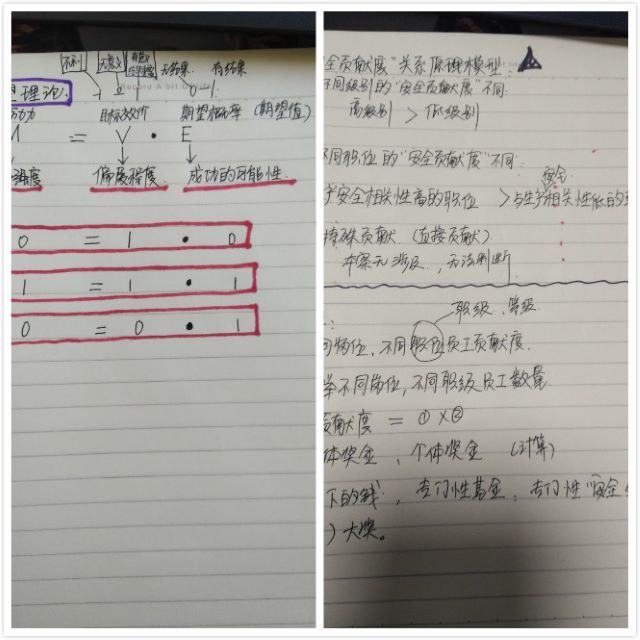 不利 无意义 无结果 有结果
-1 0 0 1
Record A bit
理理论:
动力 目标效价 期望概率 (期望值)
M = V · E
强度 偏展程度 成功的可能性
0 = 1 · 0
1 = 1 · 1
0 = 0 · 1
全贡献度"关系原理模型:
不同级别的"安全贡献度"不同:
高级别 > 低级别
不同职位的"安全贡献度"不同:
安全
安全相关性高的职位 > 与生产相关性低的
特殊贡献 (直接贡献)
本案无涉及,无法判断
职级、等级
岗位,不同职位员工贡献度.
不同岗位,不同职级员工数量
贡献度 = ① × ②
体奖金、个体奖金 (计算)
下的钱:专门性基金:专门性"安全
)大奖。